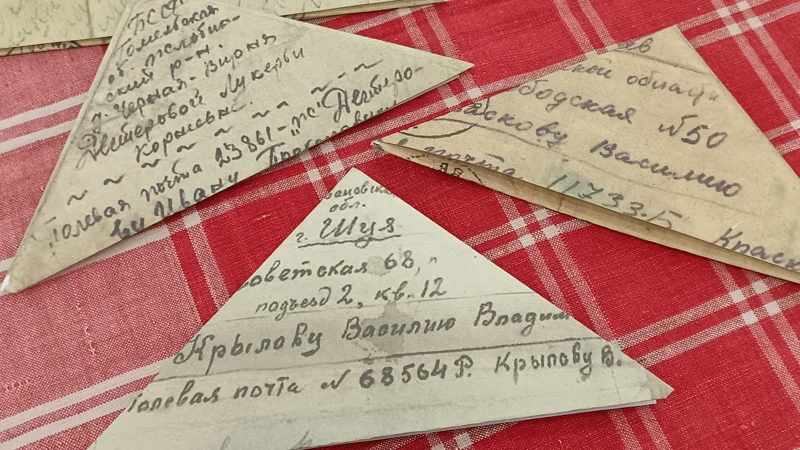 БССР
Гомельская
об. Жлобин-
ский р-н.
д. Черная-Вирня
Дегтеровой Лукерьи
Корнеевне.
~ ~ ~ ~ ~ ~ ~ ~ ~
Полевая почта 23861-"ж"
ву Ивану
ев
кой области
бодская №50
Василию
почта 11733.Б
Краск
вановская
обл.
г. Шуя
оветская 68,
подъезд 2, кв. 12
Крылову Василию Владим
Полевая почта № 68564 Р. Крылову В.